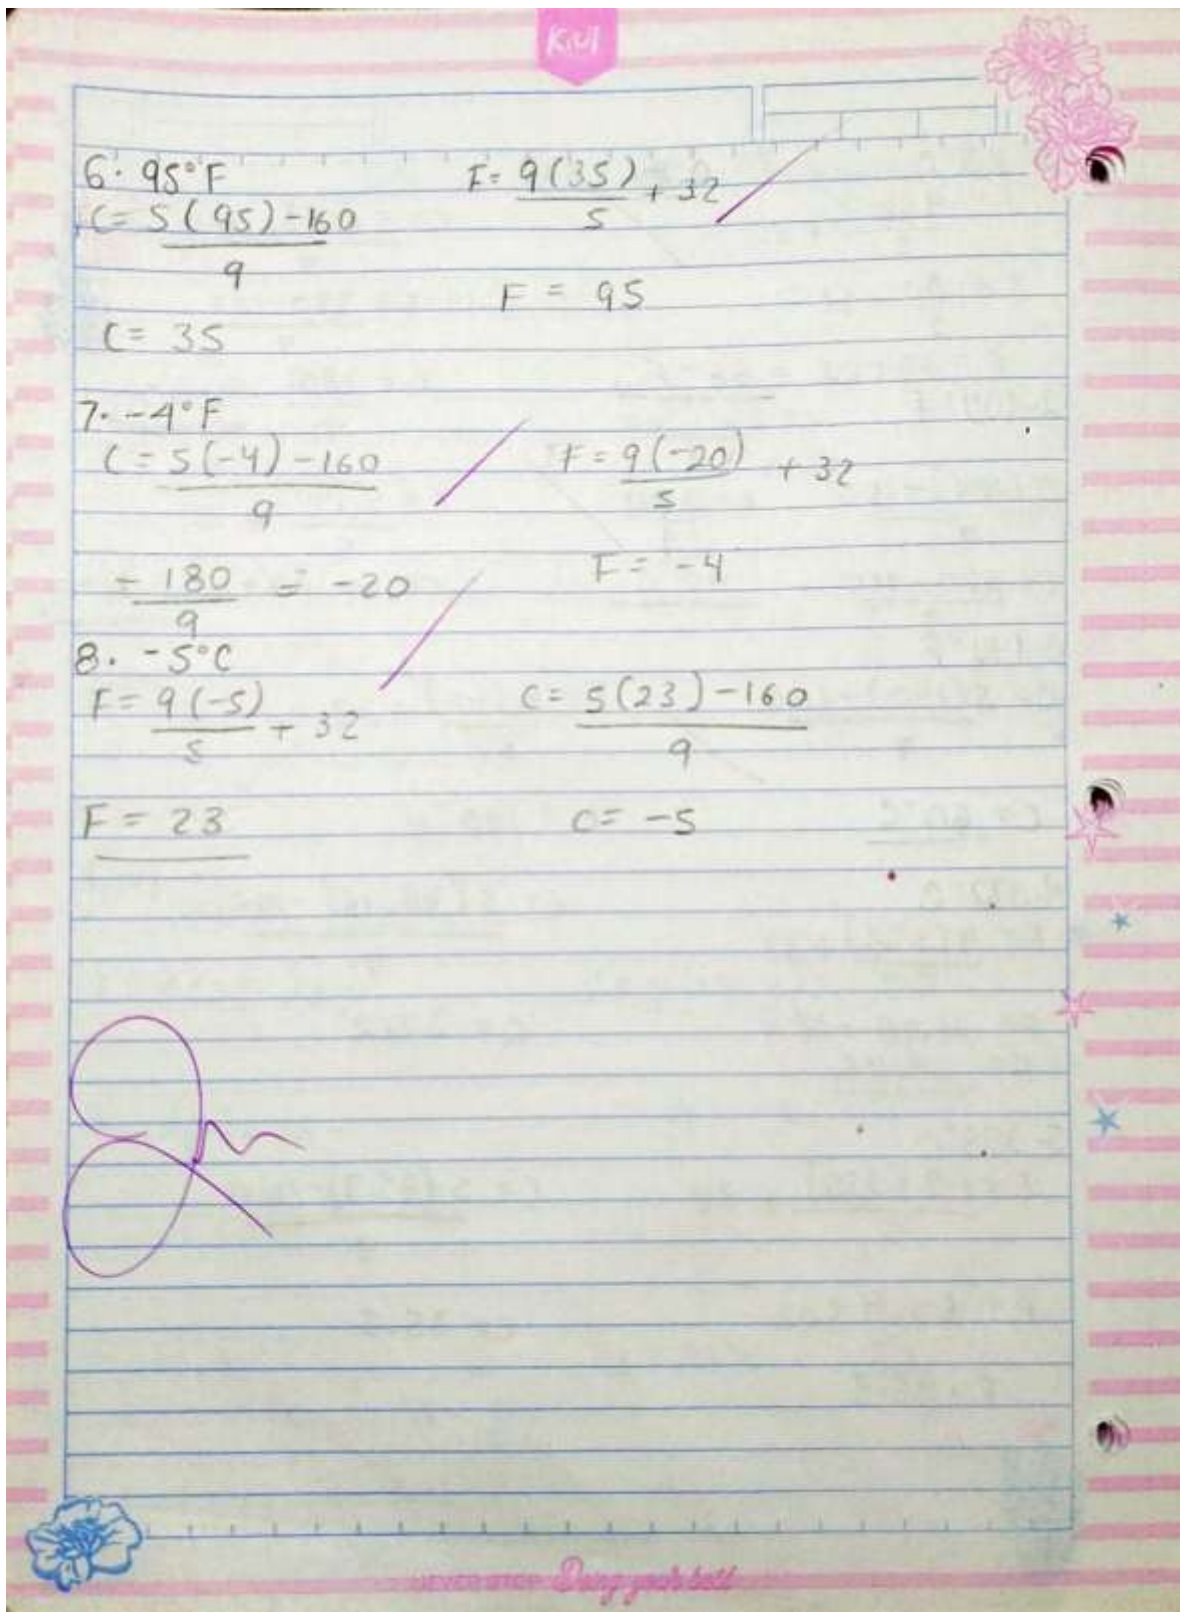 KIUI
6. 95°F
C = 5(95) - 160
9
C = 35
F = 9(35) + 32
5
F = 95
7. -4°F
C = 5(-4) - 160
9
- 180 = -20
9
F = 9(-20) + 32
5
F = -4
8. -5°C
F = 9(-5) + 32
5
F = 23
C = 5(23) - 160
9
C = -5
NEVER STOP Doing your best